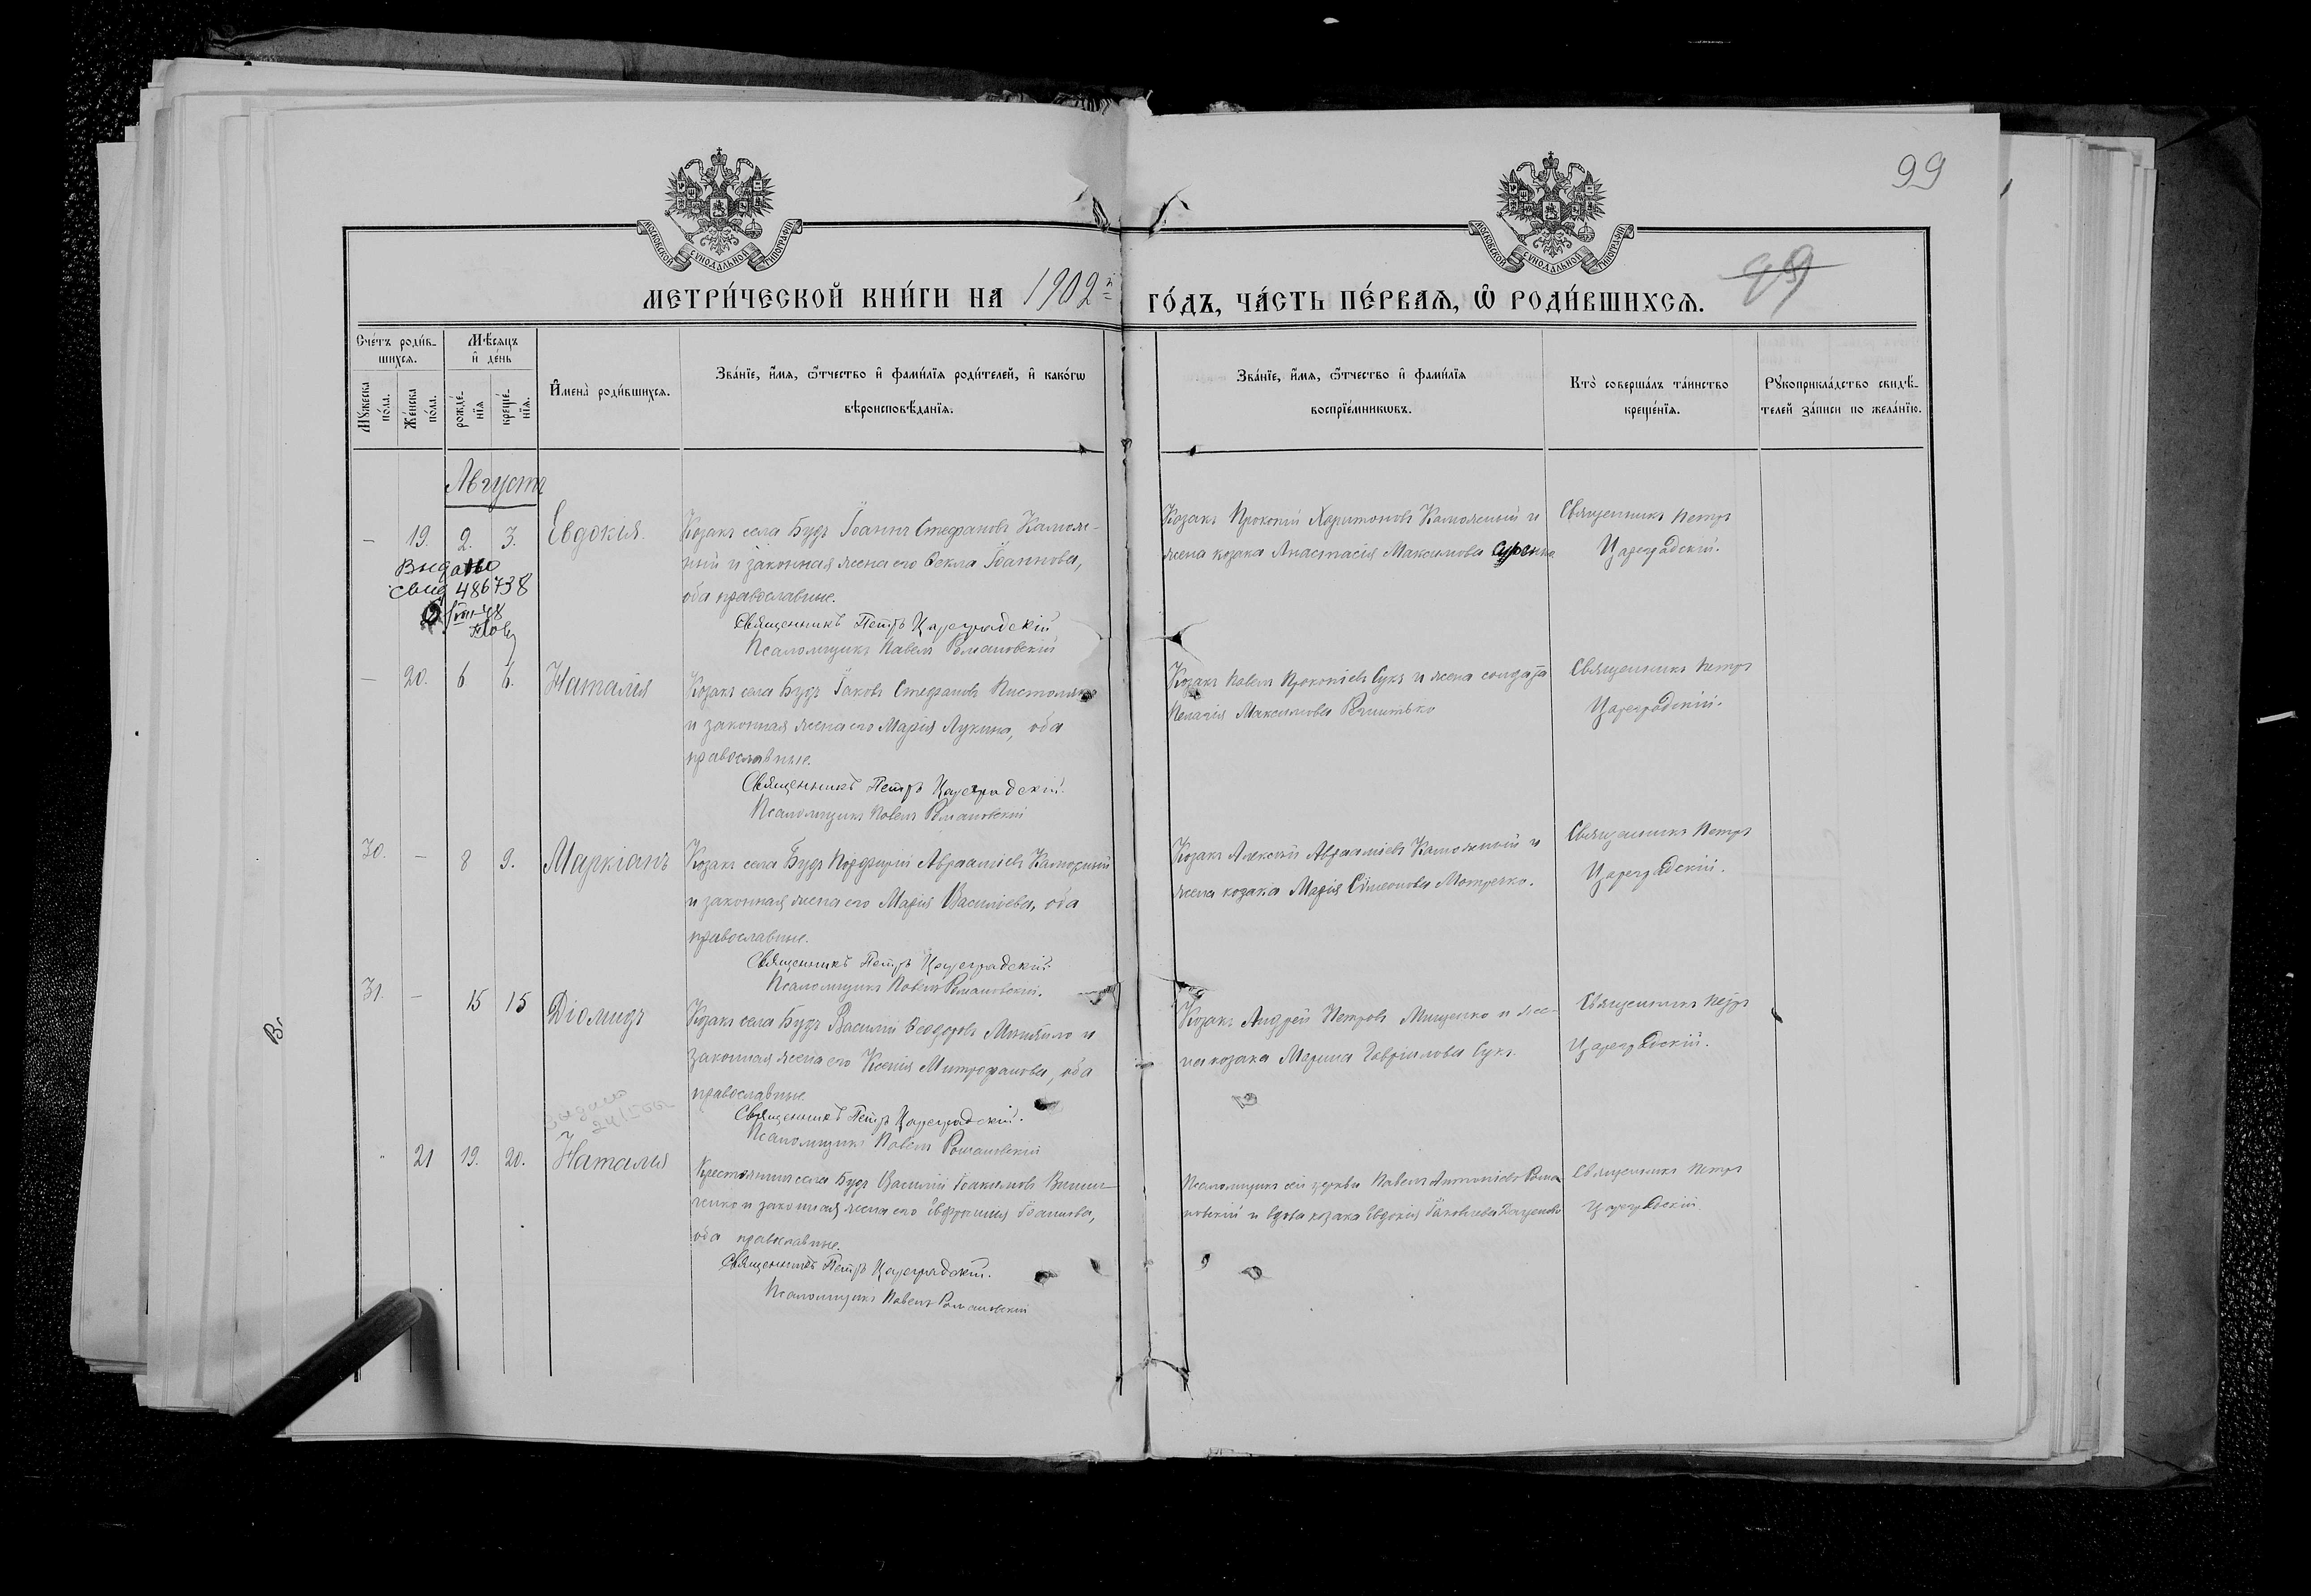 99
МОСКОВСКОЙ СѴНОДАЛЬНОЙ ТИПОГРАФІИ
МОСКОВСКОЙ СѴНОДАЛЬНОЙ ТИПОГРАФІИ
МЕТРИ́ЧЕСКОЙ КНИ́ГИ НА 1902й ГО́ДЪ, ЧА́СТЬ ПЕ́РВАѦ, Ѡ҆ РОДИ́ВШИХСѦ.
99
Сче́тъ роди́в-
шихсѧ.
Мѣ́сѧцъ
и҆ де́нь
Мꙋ́жеска
по́ла.
Же́нска
по́ла.
рожде́-
нїѧ
креще́-
нїѧ.
И҆мена̀ роди́вшихсѧ.
Зва́нїе, и҆́мѧ, ѻ҆́тчество и҆ фами́лїѧ роди́телей, и҆ како́гѡ
вѣроисповѣ́данїѧ.
Зва́нїе, и҆́мѧ, ѻ҆́тчество и҆ фами́лїѧ
воспрїе́мникѡвъ.
Кто̀ соверша́лъ та́инство
креще́нїѧ.
Рꙋкоприкла́дство свидѣ́-
телей за́писи по жела́нїю.
Августъ
— 19. 2. 3. Евдокія.
Козакъ села Будъ Іоаннъ Стефановъ Камяж-
ный и законная жена его Ѳекла Іоаннова,
оба православные.
Священникъ Петръ Цареградскій
Псаломщикъ Павелъ Романовскій
Козакъ Прокопій Харитоновъ Камяжный и
жена козака Анастасія Максимова
Священникъ Петръ
Цареградскій.
Выдано
свид 486738
— 20. 6 6. Наталія
Козакъ села Будъ Іаковъ Стефановъ
и законная жена его Марія Лукина, оба
православные.
Священникъ Петръ Цареградскій.
Псаломщикъ Павелъ Романовскій
Козакъ Павелъ Прокопіевъ Сукъ и жена солдата
Пелагія Максимова
Священникъ Петръ
Цареградскій.
30. — 8 9. Маркіанъ
Козакъ села Будъ Порфирій Авраміевъ Камяжный
и законная жена его Марія Василіева, оба
православные.
Священникъ Петръ Цареградскій.
Псаломщикъ Павелъ Романовскій.
Козакъ Алексій Авраміевъ Камяжный и
жена козака Марія Сімеонова
Священникъ Петръ
Цареградскій.
31. — 15 15 Діомидъ
Козакъ села Будъ Василій Ѳеодоровъ и
законная жена его Ксенія Митрофанова, оба
православные
Священникъ Петръ Цареградскій.
Псаломщикъ Павелъ Романовскій
Козакъ Андрей Петровъ Мищенко и же-
на козака Марина Гавріилова Сукъ.
Священникъ Петръ
Цареградскій.
21 19. 20. Наталія
Крестьянинъ села Будъ Василій Іоакимовъ Винни-
ченко и законная жена его Евфросинія Іоаннова,
оба православные.
Священникъ Петръ Цареградскій.
Псаломщикъ Павелъ Романовскій
Псаломщикъ сей церкви Павелъ Антоніевъ Рома-
новскій и вдова козака Евдокія Іаковлева
Священникъ Петръ
Цареградскій.